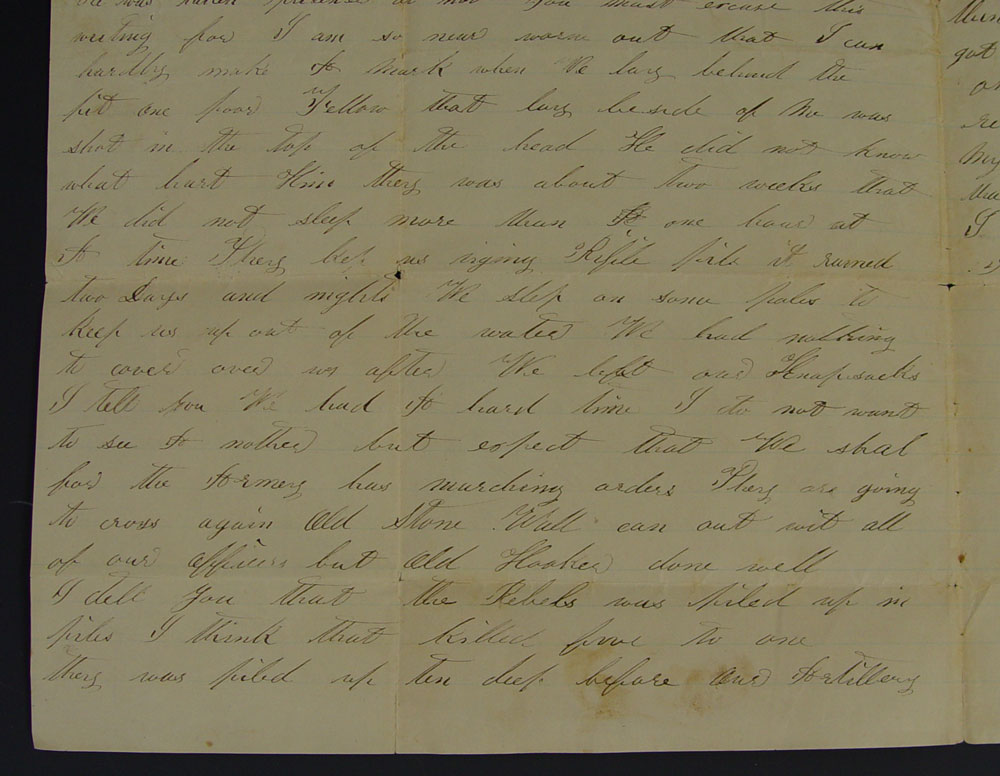 was taken not You must excuse this
writing for I am so near worn out that I can
hardly make A mark when We lay behind the
pit one poor Fellow that lay beside of Me was
shot in the top of the head He did not know
what hurt Him they was about two weeks that
We did not sleep more than A one hour at
A time They kep us Rifile pits it rained
two Days and nights We slep on some poles to
keep us up out of the water We had nothing
to cover over us after We left our Knapsacks
I tell you We had A hard time I do not want
to see A nother but expect that We shal
for the Armey has marching orders They are going
to cross again Old Stone Wall can out wit all
of our officers but Old Hooker done well
I tell You that the Rebels was piled up in
piles I think that killed four to one
they was piled up ten deep before our Artillery
Mun
got
on
re
My
tha
I